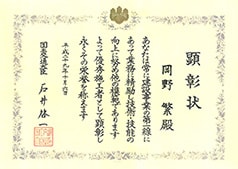 顕彰状
岡野 繁殿
あなたは常に建設事業の第一線に
あって業務に精励し技術・技能の
向上に努め他の模範であります
よって優秀施工者として顕彰し
永くその栄誉を称えます
平成二十九年十月六日
国土交通大臣 石井啓一